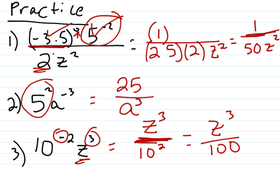 Practice
1) (-3·5)⁰5⁻² / 2z² = (1) / (25)(2)z² = 1 / 50z²
2) 5²a⁻³ = 25 / a³
3) 10⁻²z³ = z³ / 10² = z³ / 100